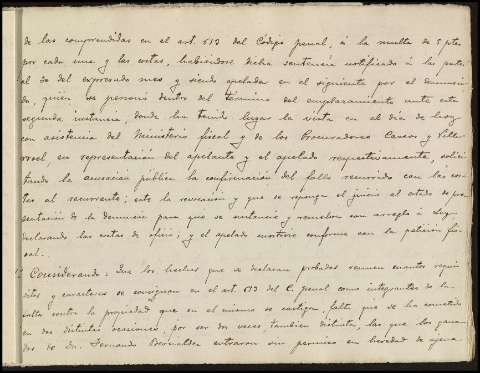 de las comprendidas en el art. 613 del Código penal, á la multa de 5 ptas
por cada una y las costas, habiéndose dicha sentencia notificado á las partes
al 30 del expresado mes y siendo apelada en el siguiente por el denuncia-
do, quien se personó dentro del término del emplazamiento ante esta
segunda instancia, donde ha tenido lugar la vista en el día de hoy
con asistencia del Ministerio fiscal y de los Procuradores y
en representación del apelante y el apelado respectivamente, solici-
tando la acusación pública la confirmación del fallo recurrido con las cos-
tas al recurrente; este la revocación y que se reponga el juicio al estado de pre-
sentación de la denuncia para que se sustancie y resuelva con arreglo á Ley
declarando las costas de oficio; y el apelado conforme con la petición fis-
cal.
1º Considerando: Que los hechos que se declaran probados reunen cuantos requi-
sitos y caracteres se consignan en el art. 613 del C. penal como integrantes de la
falta contra la propiedad que en el mismo se castiga, falta que se ha cometido
en dos distintas ocasiones, por ser dos veces, tambien distintas, las que los gana-
dos de Dn. Fernando entraron sin permiso en heredad de agena